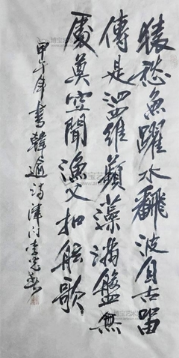 猿愁魚躍水翻波自古留
傳是汨羅蘋藻滿盤無
處奠空聞漁父扣舷歌
甲午年書韓逾詩津门李